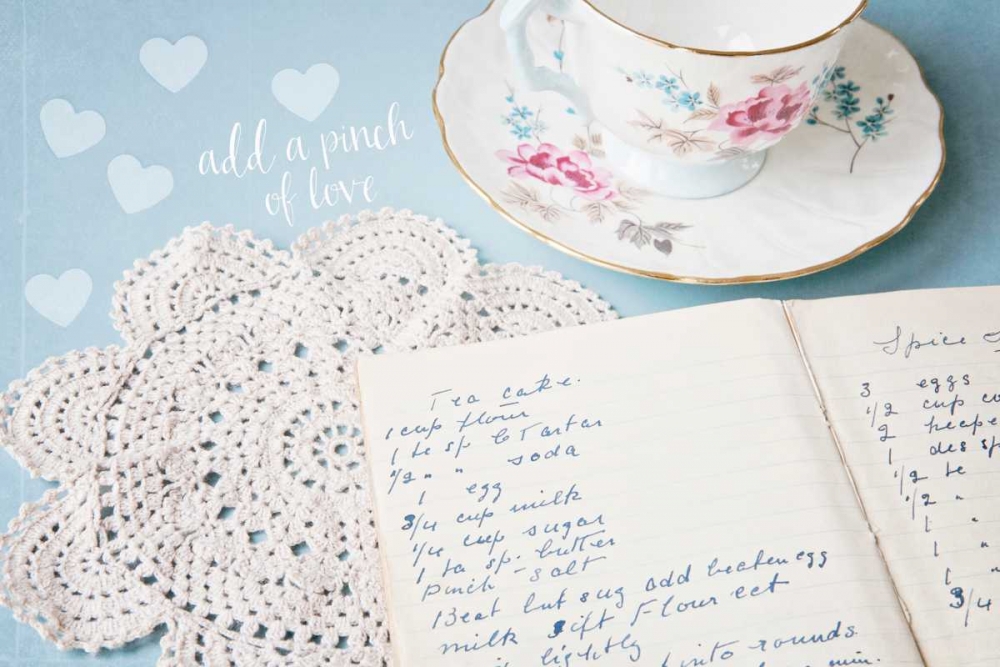 add a pinch
of love
Tea cake.
1 cup flour
1 te sp C Tartar
1/2 " " soda
1 egg
3/4 cup milk
1/4 cup sugar
1 ta sp. butter
Pinch - salt
Beat but sug add beaten egg
milk Sift Flour ect
lightly into rounds
min.
Spice
3 eggs
1/2 cup
2
1 des sp
1/2 te
1/2 "
1 "
1 "
1 "
3/4